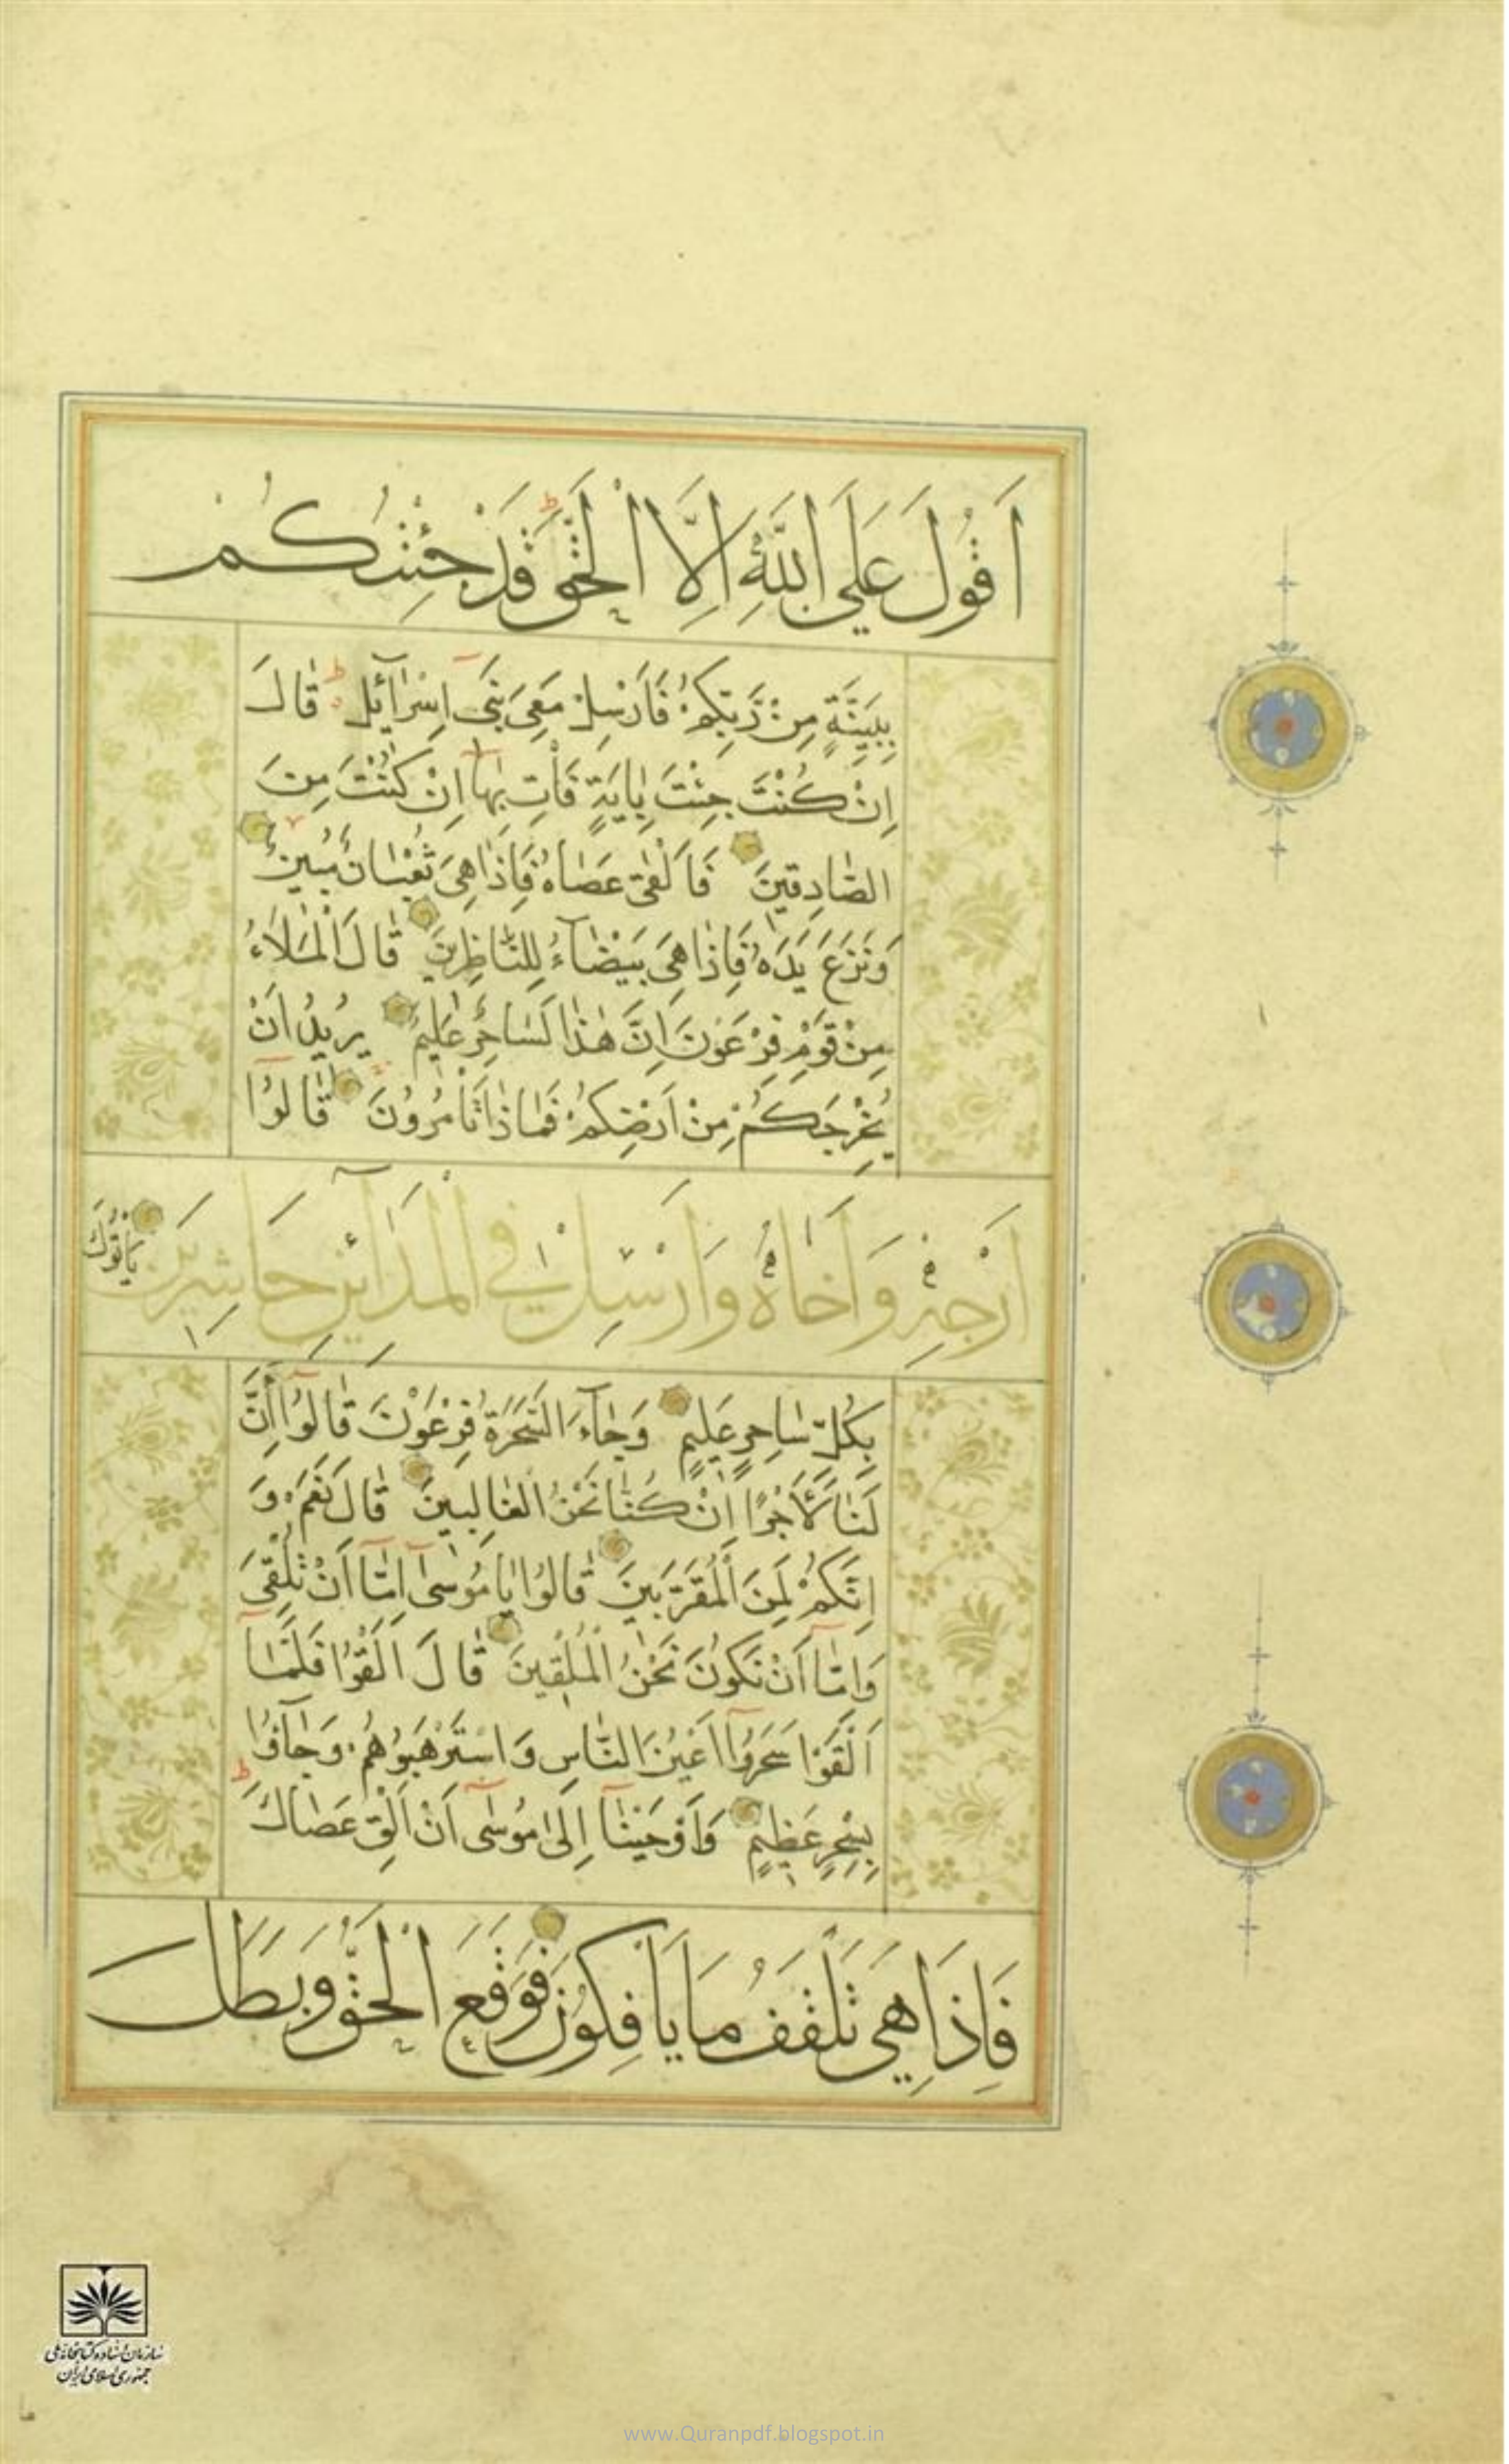 اَقُولَ عَلَى اللّٰهِ اِلَّا الْحَقَّ ط قَدْ جِئْتُكُمْ
بِبَيِّنَةٍ مِنْ رَبِّكُمْ فَاَرْسِلْ مَعِىَ بَنِىۤ اِسْرَاۤئِلَ ط قَالَ
اِنْ كُنْتَ جِئْتَ بِاٰيَةٍ فَأْتِ بِهَا اِنْ كُنْتَ مِنَ
الصَّادِقِينَ فَاَلْقٰى عَصَاهُ فَاِذَا هِىَ ثُعْبَانٌ مُبِينٌ
وَنَزَعَ يَدَهُ فَاِذَا هِىَ بَيْضَاۤءُ لِلنَّاظِرِينَ قَالَ الْمَلَاءُ
مِنْ قَوْمِ فِرْعَوْنَ اِنَّ هٰذَا لَسَاحِرٌ عَلِيمٌ يُرِيدُ اَنْ
يُخْرِجَكُمْ مِنْ اَرْضِكُمْ فَمَاذَا تَأْمُرُونَ قَالُوۤا
اَرْجِهْ وَاَخَاهُ وَاَرْسِلْ فِى الْمَدَاۤئِنِ حَاشِرِينَ يَأْتُوكَ
بِكُلِّ سَاحِرٍ عَلِيمٍ وَجَاۤءَ السَّحَرَةُ فِرْعَوْنَ قَالُوۤا أَاِنَّ
لَنَا لَاَجْرًا اِنْ كُنَّا نَحْنُ الْغَالِبِينَ قَالَ نَعَمْ وَ
اِنَّكُمْ لَمِنَ الْمُقَرَّبِينَ قَالُوا يَا مُوسٰىۤ اِمَّاۤ اَنْ تُلْقِىَ
وَاِمَّاۤ اَنْ نَكُونَ نَحْنُ الْمُلْقِينَ قَالَ اَلْقُوْا فَلَمَّاۤ
اَلْقَوْا سَحَرُوۤا اَعْيُنَ النَّاسِ وَاسْتَرْهَبُوهُمْ وَجَاۤؤُا
بِسِحْرٍ عَظِيمٍ وَاَوْحَيْنَاۤ اِلٰى مُوسٰىۤ اَنْ اَلْقِ عَصَاكَ ط
فَاِذَا هِىَ تَلْقَفُ مَا يَأْفِكُونَ فَوَقَعَ الْحَقُّ وَبَطَلَ
سازمان اسناد و کتابخانه ملی
جمهوری اسلامی ایران
www.Quranpdf.blogspot.in